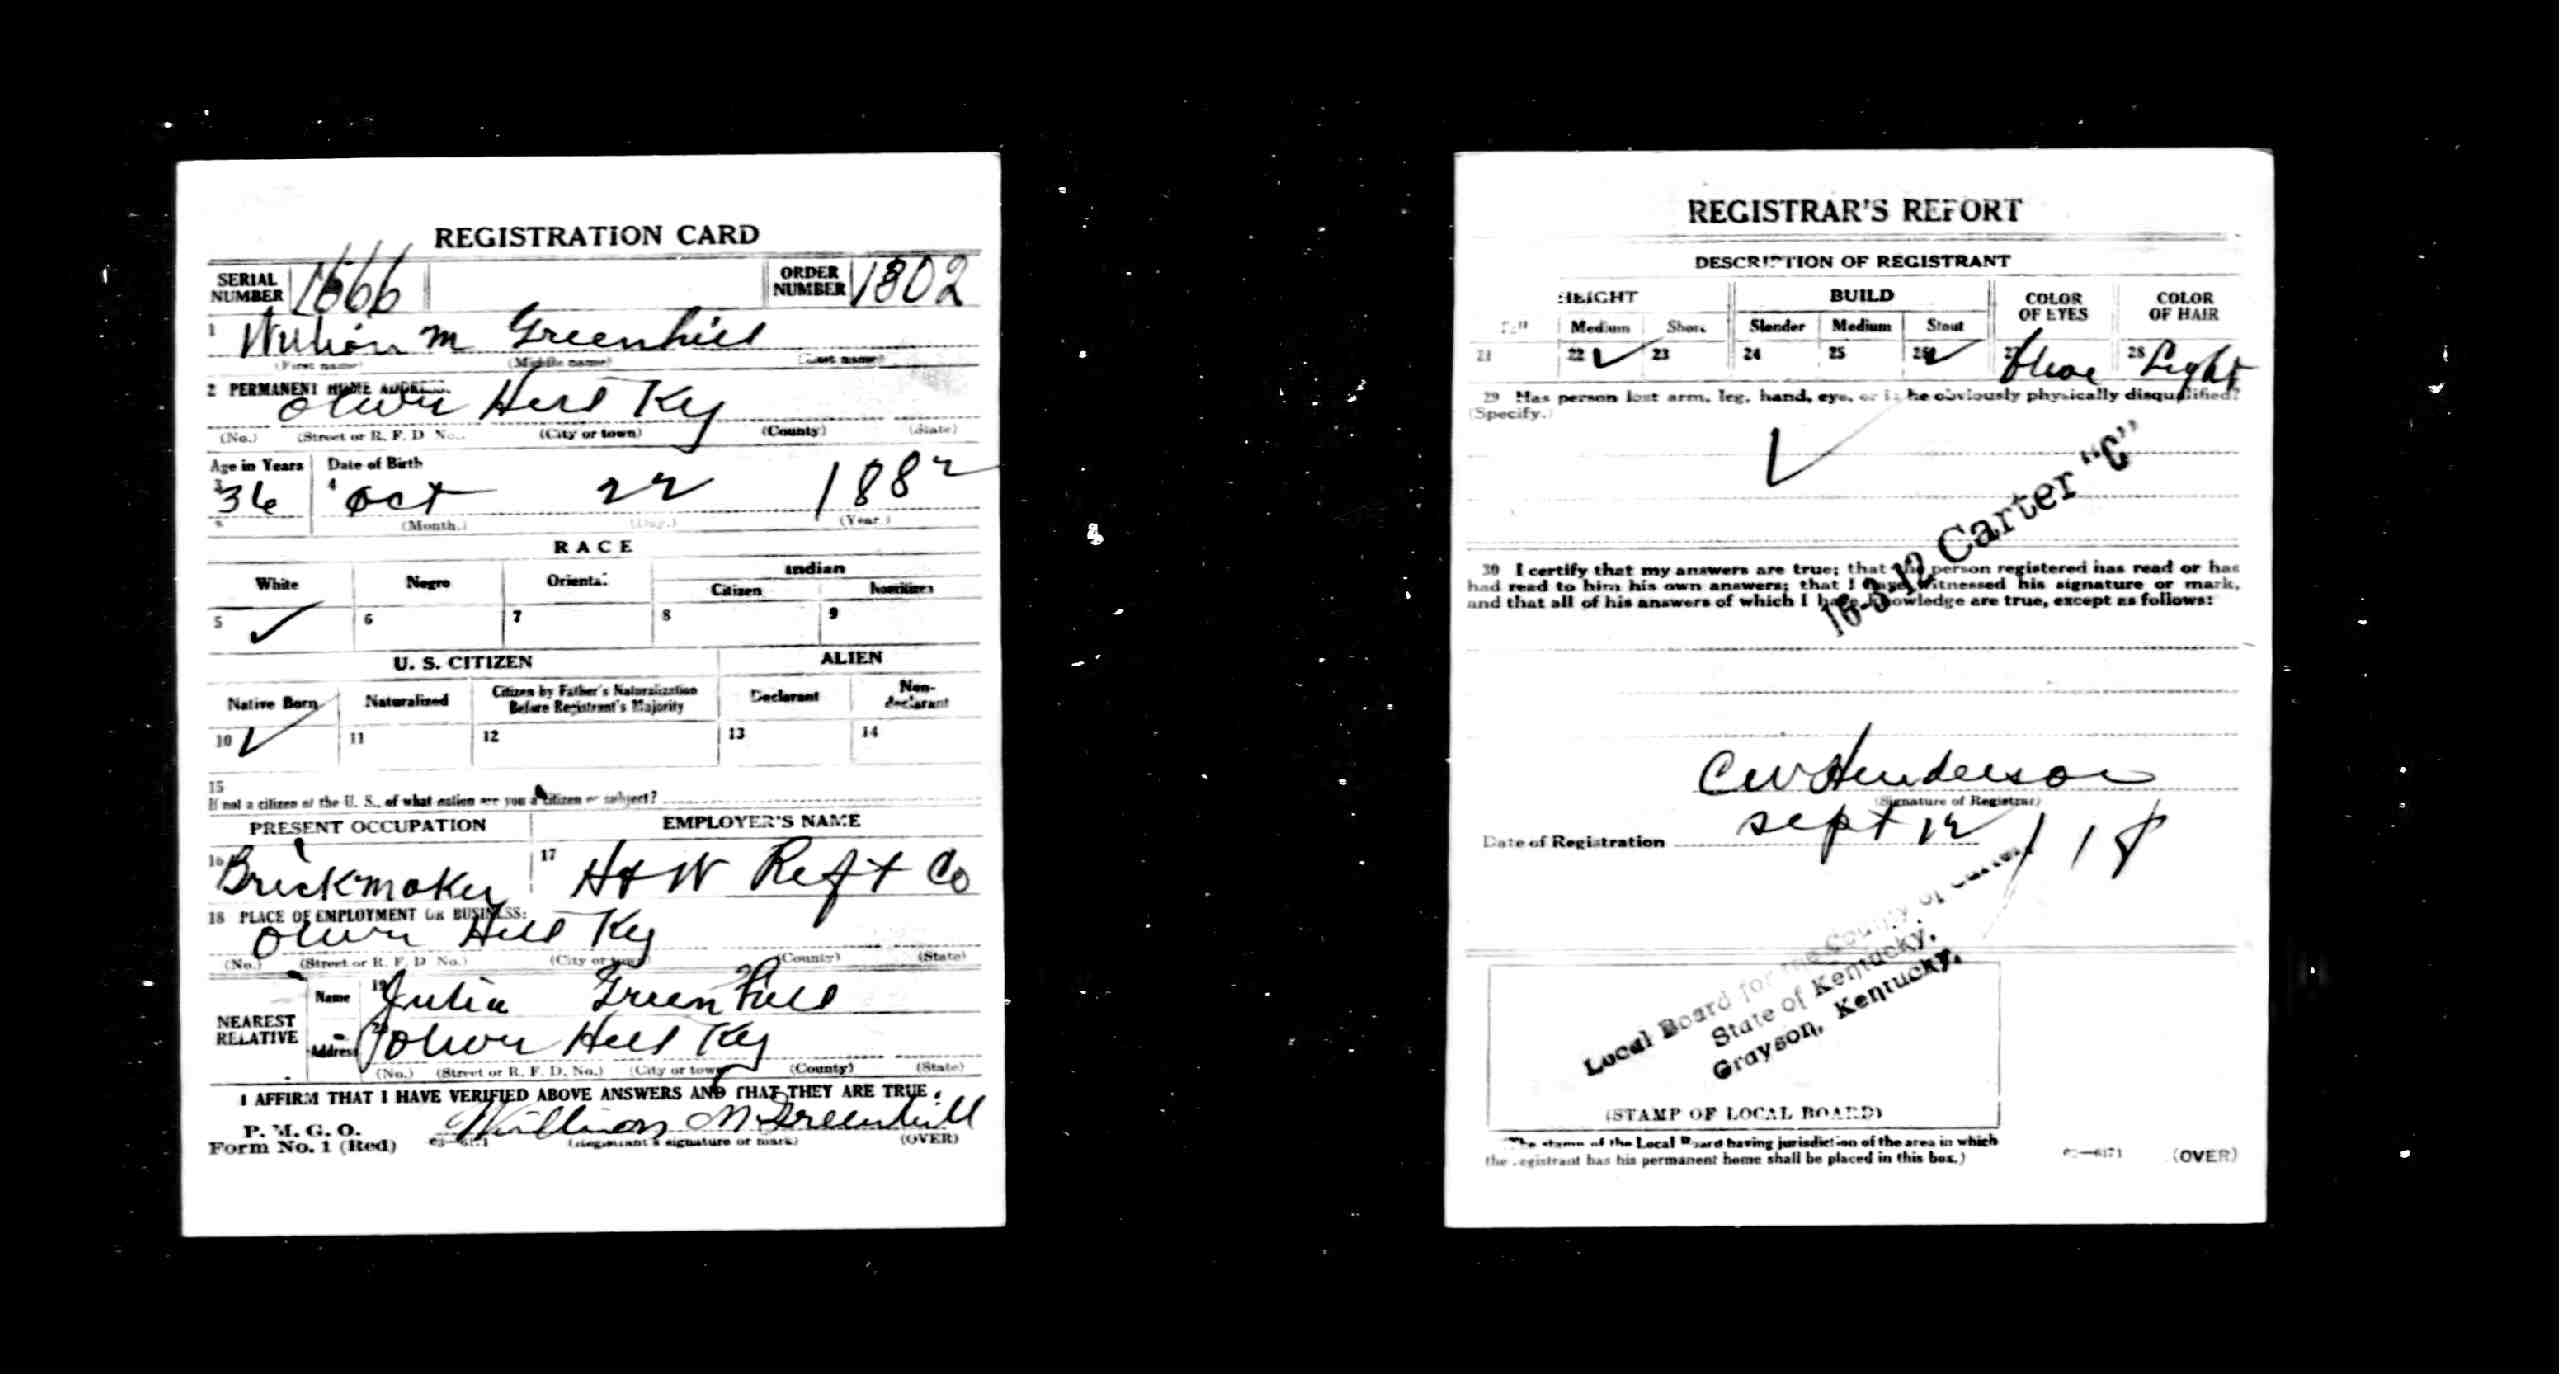 REGISTRATION CARD
SERIAL NUMBER 1666 ORDER NUMBER 1802
1 William M Greenhill
(First name) (Middle name) (Last name)
2 PERMANENT HOME ADDRESS:
Oliver Hill Ky
(No.) (Street or R. F. D. No.) (City or town) (County) (State)
Age in Years Date of Birth
3 36 4 Oct 22 1882
(Month.) (Day.) (Year.)
RACE
White Negro Oriental Indian
Citizen Noncitizen
5 ✓ 6 7 8 9
U. S. CITIZEN ALIEN
Native Born Naturalized Citizen by Father's Naturalization Before Registrant's Majority Declarant Non-declarant
10 ✓ 11 12 13 14
15
If not a citizen of the U. S., of what nation are you a citizen or subject?
PRESENT OCCUPATION EMPLOYER'S NAME
16 Brickmaker 17 H & W Reft Co
18 PLACE OF EMPLOYMENT OR BUSINESS:
Oliver Hill Ky
(No.) (Street or R. F. D. No.) (City or town) (County) (State)
NEAREST RELATIVE Name 19 Julia Greenhill
Address 20 Oliver Hill Ky
(No.) (Street or R. F. D. No.) (City or town) (County) (State)
I AFFIRM THAT I HAVE VERIFIED ABOVE ANSWERS AND THAT THEY ARE TRUE.
P. M. G. O.
Form No. 1 (Red) 03—6171 William M Greenhill
(Registrant's signature or mark) (OVER)
REGISTRAR'S REPORT
DESCRIPTION OF REGISTRANT
HEIGHT BUILD COLOR OF EYES COLOR OF HAIR
Tall Medium Short Slender Medium Stout
21 22 ✓ 23 24 25 26 ✓ 27 Blue 28 Light
29 Has person lost arm, leg, hand, eye, or is he obviously physically disqualified?
(Specify.)
✓
16-3-12 Carter "C"
30 I certify that my answers are true; that the person registered has read or has
had read to him his own answers; that I have witnessed his signature or mark,
and that all of his answers of which I have knowledge are true, except as follows:
C W Henderson
(Signature of Registrar)
Date of Registration Sept 12 / 18
Local Board for the County of Carter,
State of Kentucky,
Grayson, Kentucky.
(STAMP OF LOCAL BOARD)
(The stamp of the Local Board having jurisdiction of the area in which
the registrant has his permanent home shall be placed in this box.)
03—6171 (OVER)